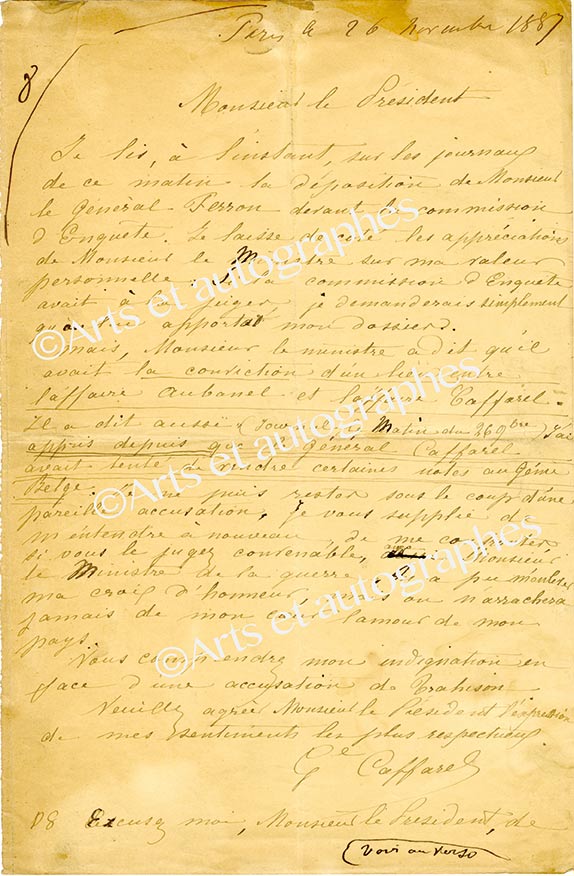 Paris le 26 novembre 1887
8
Monsieur le Président
Je lis, à l'instant, sur les journaux
de ce matin la déposition de Monsieur
le Général Ferron devant la commission
d'Enquete. Je laisse de coté les appréciations
de Monsieur le Ministre sur ma valeur
personnelle. la commission d'Enquete
avait à la juger, je demanderais simplement
qu'on lui apportat mon dossier.
Mais, Monsieur le ministre a dit qu'il
avait la conviction d'un lien entre
l'affaire Aubanel et l'affaire Caffarel.
Il a dit aussi (Journal le Matin du 26 9bre) J'ai
appris depuis que le général Caffarel
avait tenté de vendre certaines notes au Génie
Belge. Je ne puis rester sous le coup d'une
pareille accusation, je vous supplie de
m'entendre à nouveau, de me confronter
si vous le jugez convenable, Monsieur
le Ministre de la guerre. On a pu m'enlever
ma croix d'honneur, mais on n'arrachera
jamais de mon cœur l'amour de mon
pays.
Vous comprendrez mon indignation en
face d'une accusation de Trahison.
Veuillez agréer Monsieur le Président l'expression
de mes sentiments les plus respectueux.
Gal Caffarel
PS Excusez moi, Monsieur le Président, de
Voir au verso
©Arts et autographes
©Arts et autographes
©Arts et autographes
©Arts et autographes
©Arts et autographes